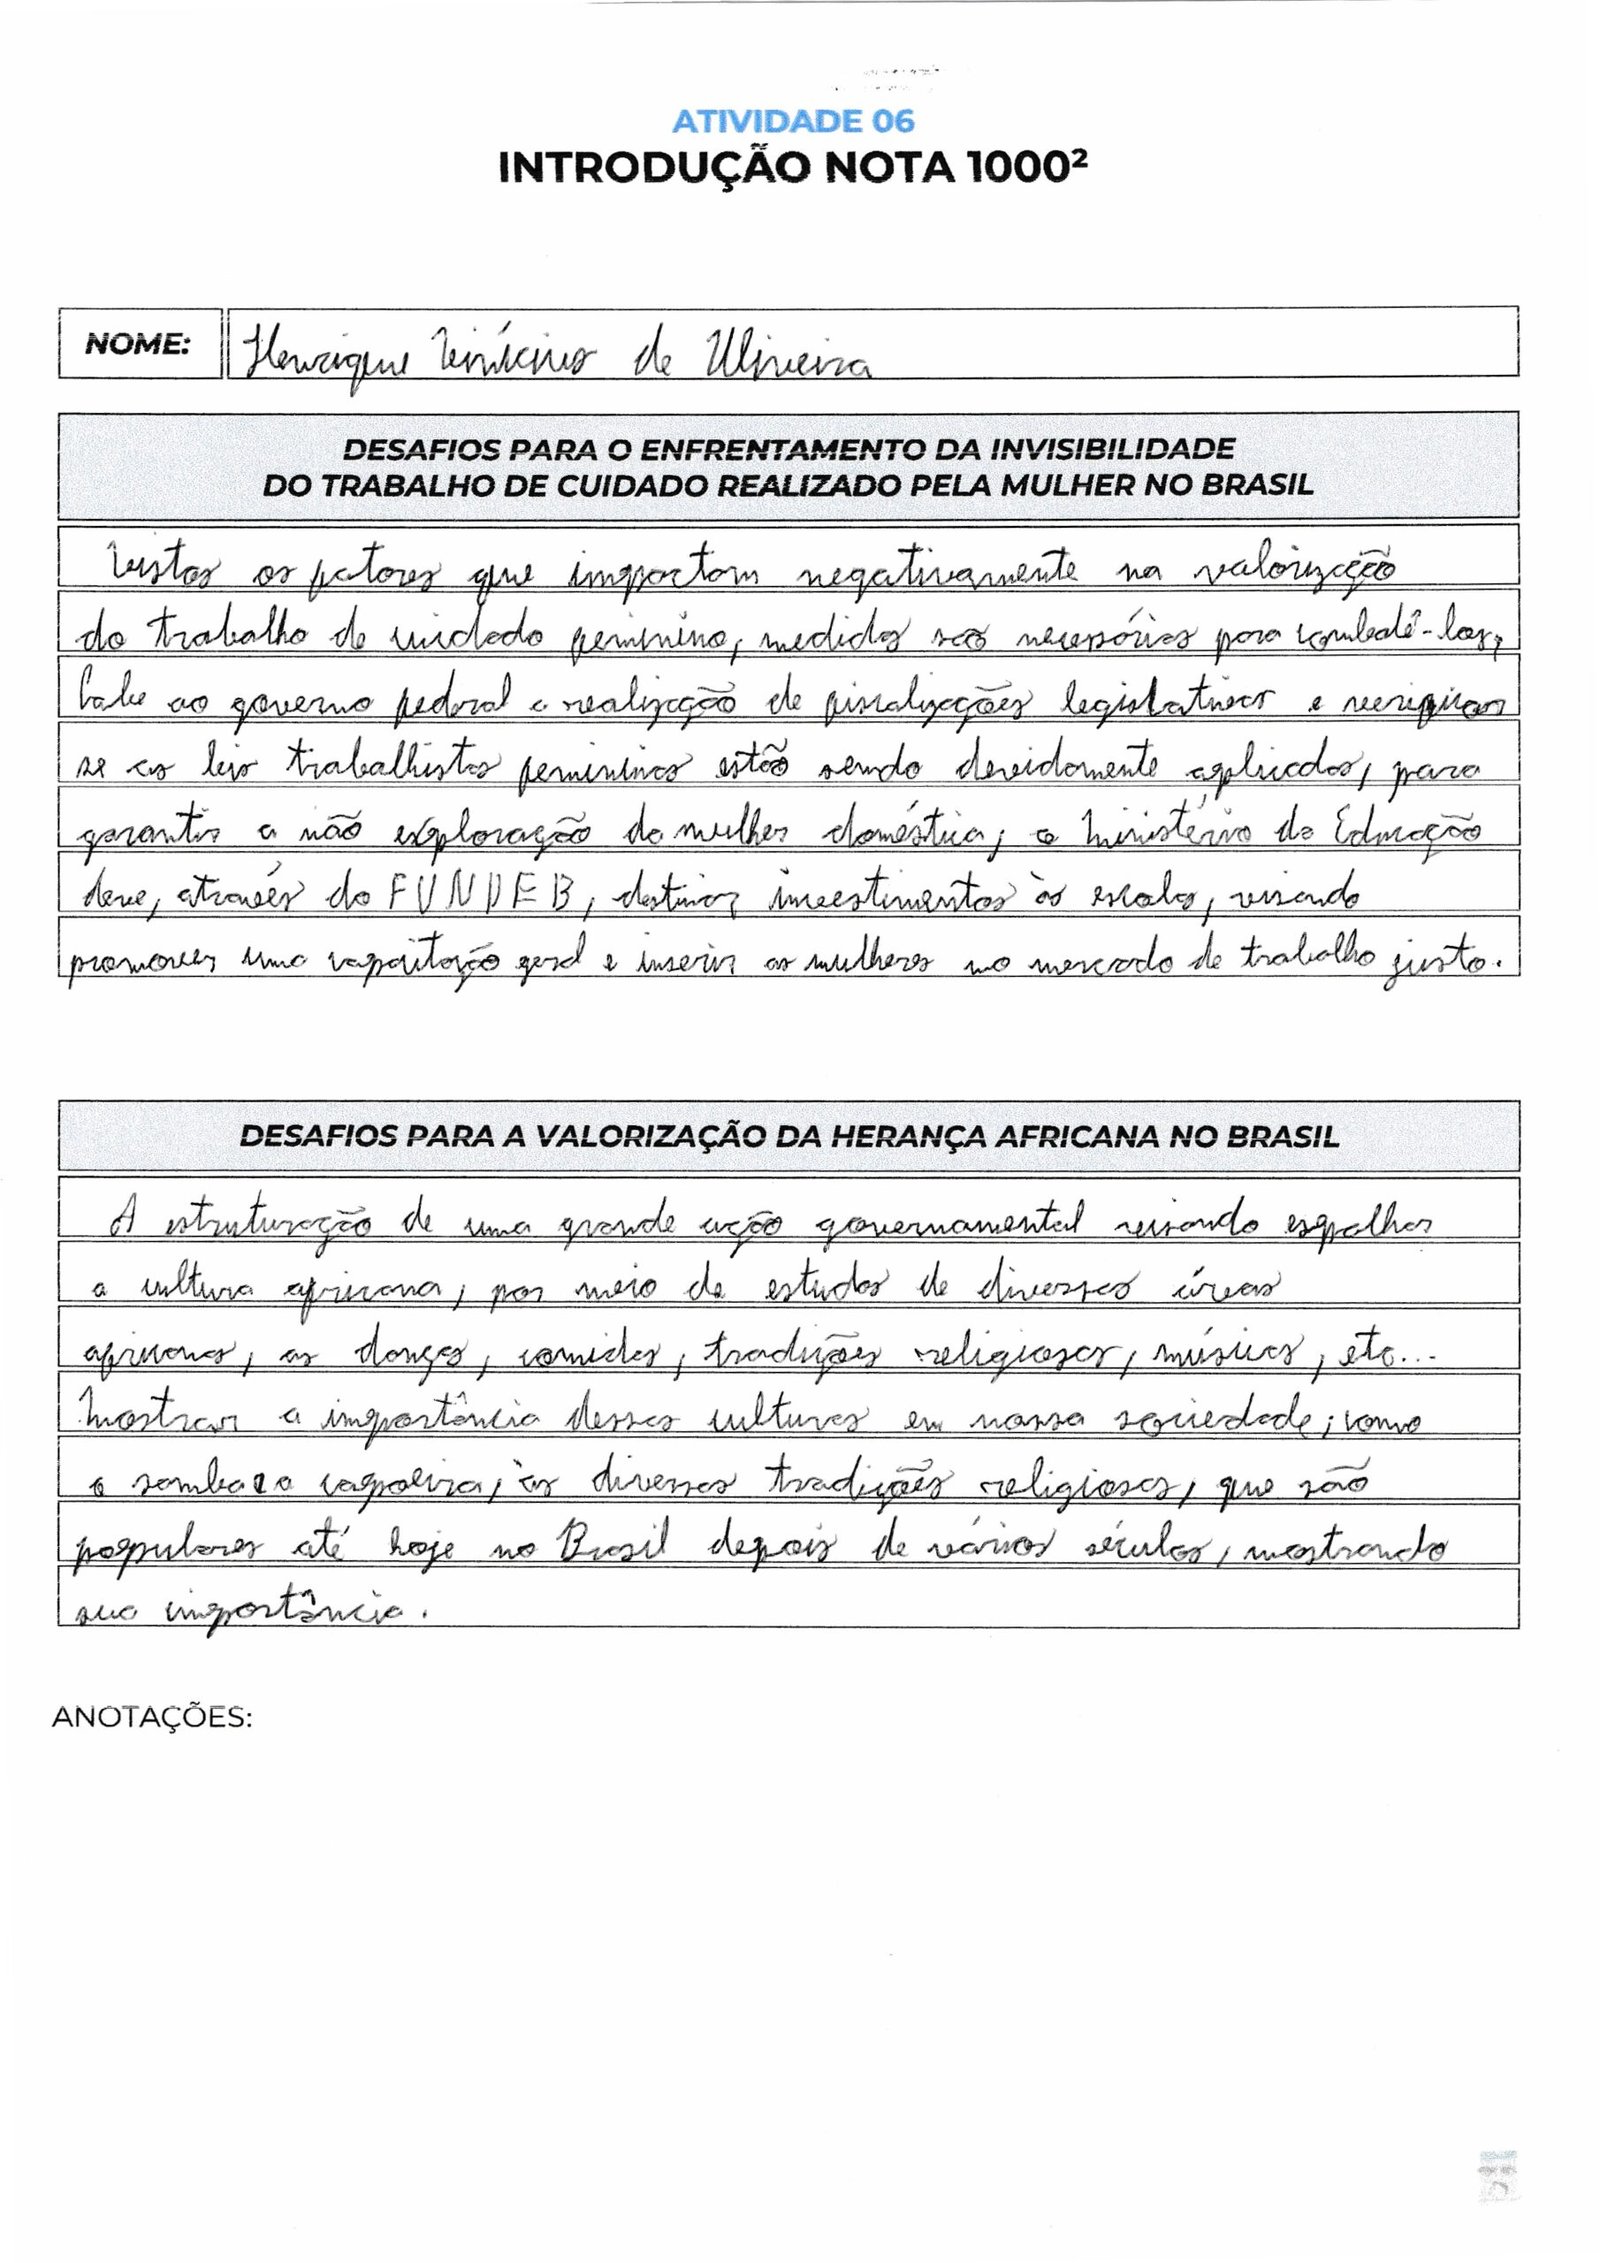 ATIVIDADE 06
INTRODUÇÃO NOTA 1000²
NOME: Henrique Vinícius de Oliveira
DESAFIOS PARA O ENFRENTAMENTO DA INVISIBILIDADE
DO TRABALHO DE CUIDADO REALIZADO PELA MULHER NO BRASIL
Vistos os fatores que impactam negativamente na valorização
do trabalho de cuidado feminino, medidas são necessárias para combatê-los,
Cabe ao governo federal a realização de fiscalizações legislativas e verificar
se as leis trabalhistas femininas estão sendo devidamente aplicadas, para
garantir a não exploração da mulher doméstica; o Ministério da Educação
deve, através do FUNDEB, destinar investimentos às escolas, visando
promover uma capacitação geral e inserir as mulheres no mercado de trabalho justo.
DESAFIOS PARA A VALORIZAÇÃO DA HERANÇA AFRICANA NO BRASIL
A estruturação de uma grande ação governamental visando espalhar
a cultura africana, por meio de estudos de diversas áreas
africanas, as danças, comidas, tradições religiosas, músicas, etc...
Mostrar a importância dessas culturas em nossa sociedade; como
o samba e a capoeira, às diversas tradições religiosas, que são
populares até hoje no Brasil depois de vários séculos, mostrando
sua importância.
ANOTAÇÕES: